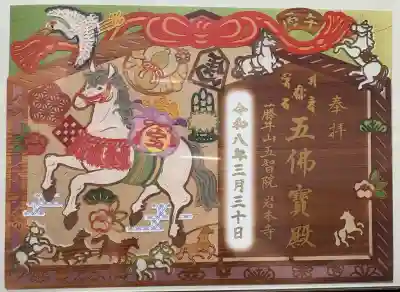 丙午
奉拝
五佛寳殿
藤井山五智院 岩本寺
令和八年三月三十日